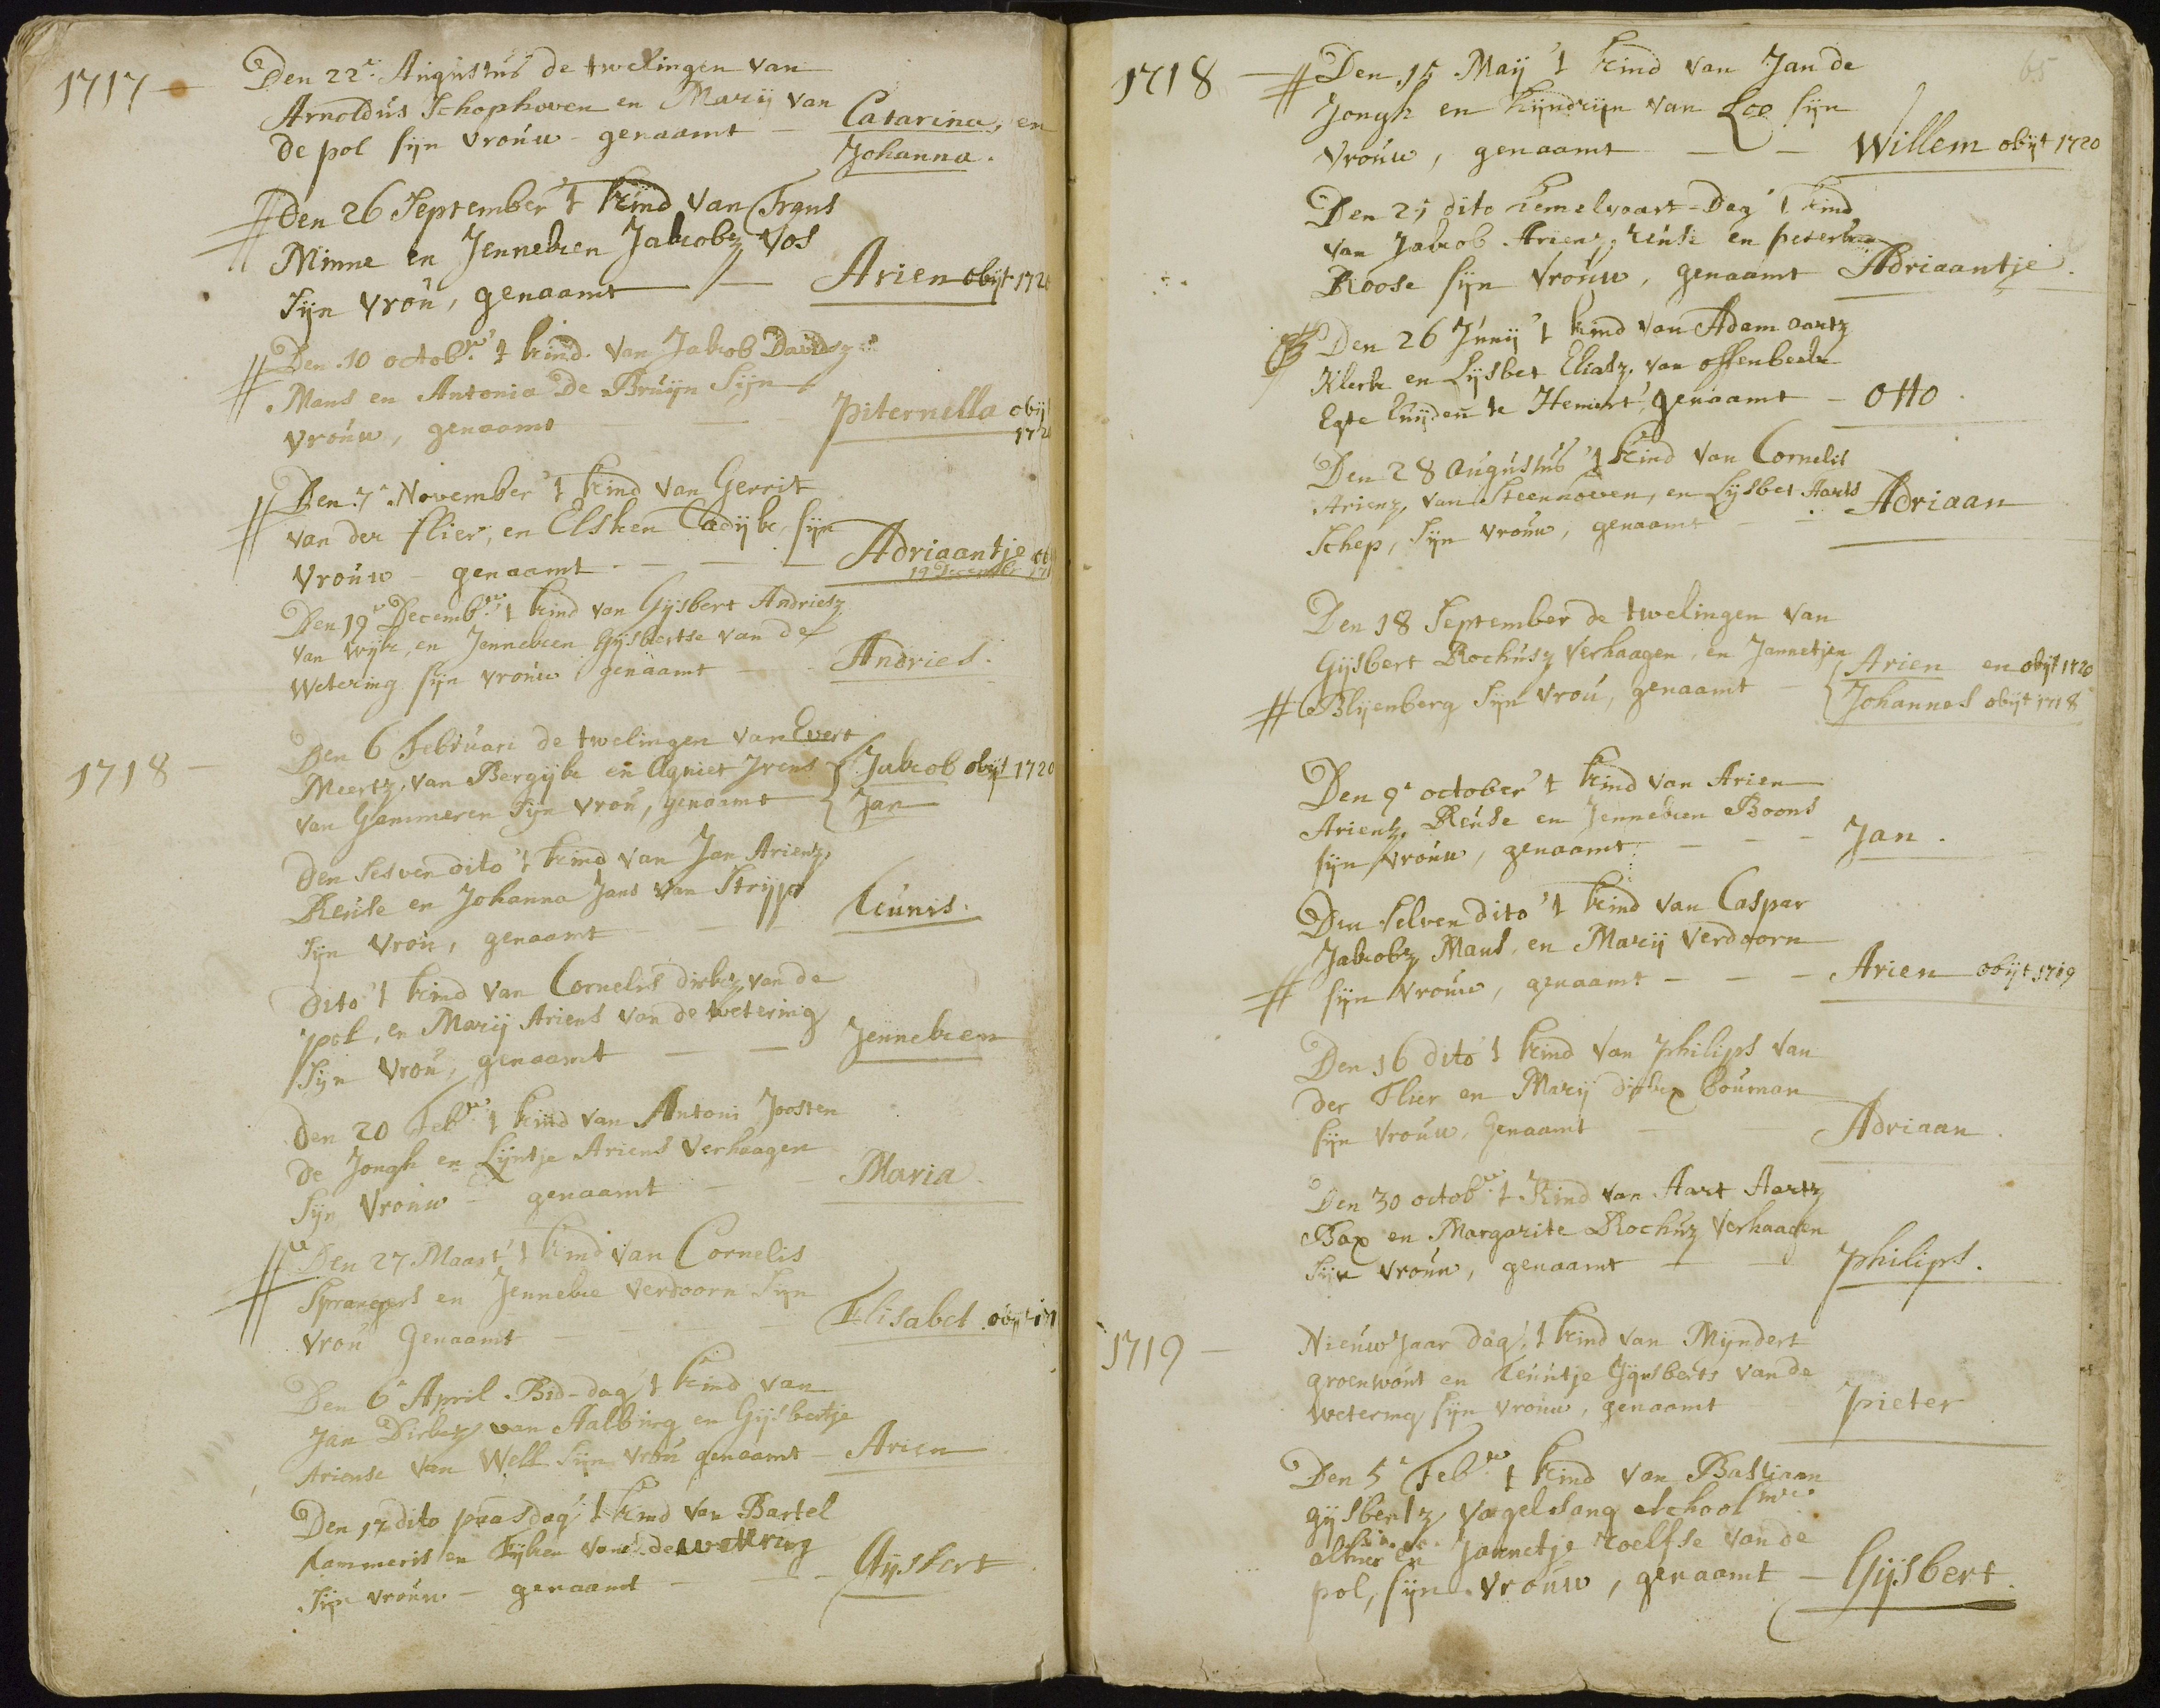 1717 —
Den 22e Augustus de twelingen van
Arnoldus Schophoven en Marij van
de pol sijn vrouw - genaamt — Catarina, en
Johanna.
Den 26 September 't kind van Frans
Minne en Jenneken Jakobz vos
sijn vrou, genaamt — Arien obijt 172
Den 10 octobr 't kind van Jakob Davidz
Mans en Antonia De Bruijn sijn
vrouw, genaamt — Piternella obijt
172
Den 7e November 't kind van Gerrit
van der flier, en Elsken Tadijk, sijn
vrouw - genaamt — Adriaantje ob
19 December 17
Den 19e Decembr 't kind van Gijsbert Andriesz
van Wijk, en Jenneken Gijsbertse van de
Wetering sijn vrouw genaamt — Andries.
1718 —
Den 6 Februari de twelingen van Evert
Meertz. van Bergijk en Agniet Jrens Jakob obijt 1720
van Gammeren sijn vrou, genaamt Jan
Den selven dito 't kind van Jan Arienz.
Reuse en Johanna Jans van Strijp
sijn vrou, genaamt — Teunis.
Dito 't kind van Cornelis dirkz van de
pol, en Marij Ariens van de wetering
sijn vrou, genaamt — Jenneken
Den 20 Febr 't kind van Antoni Joosten
de Jongh en Lijntje Ariens Verhaagen
sijn vrouw - genaamt — Maria.
Den 27 Maart 't kind van Cornelis
Sprangers en Jenneke verdoorn sijn
vrou Genaamt — Elisabet obijt 17
Den 6e April Bid-dag 't kind van
Jan Dirkz van Aalburg en Gijsbertje
Ariense van Well sijn vrou genaamt — Arien
Den 17 dito paasdag 't kind van Bartel
Lammerts en Eijken van de wetering
sijn vrouw - genaamt — Gijsbert
65
1718 —
Den 15 Maij 't kind van Jan de
Jongh en Hijndrijn van Loo sijn
vrouw, genaamt — Willem obijt 1720
Den 25 dito hemelvaart-Dag 't kind
van Jakob Arienz, reuse en peterken
Roose sijn vrouw, genaamt Adriaantje.
Den 26 Junij 't kind van Adam aartz
Klerk en Lijsbet Eliasz. van offenbeek
Egte luijden te Hemert, genaamt — Otto
Den 28 augustus 't kind van Cornelis
Arienz, van Steenhoven, en Lijsbet Aarts
Schep, sijn vrouw, genaamt — Adriaan
Den 18 September de twelingen van
Gijsbert Rochusz Verhaagen, en Jannetjen
Blijenberg sijn vrou, genaamt — Arien en obijt 1720
Johannes obijt 1718
Den 9e october 't kind van Arien
Arientz. Reuse en Jenneken Boons
sijn vrouw, genaamt — Jan.
Den selven dito 't kind van Caspar
Jakobz Mans, en Marij verdoorn
sijn vrouw, genaamt — Arien obijt 1719
Den 16 dito 't kind van philips van
der Flier en Marij dirkx bouman
sijn vrouw, Genaamt — Adriaan.
Den 30 octobr 't Kind van Aart Aartz
Bax en Margarite Rochusz Verhaagen
sijn vrouw, genaamt — philips.
1719 —
Nieuw Jaar dag, 't kind van Mijndert
groenwout en Teuntje Gijsberts van de
wetering sijn vrouw, genaamt — pieter
Den 5e Febr 't kind van Bastiaan
gijsbertz vogelsang schoolmr
alhier en Jannetje roelfse van de
pol, sijn vrouw, genaamt — Gijsbert.